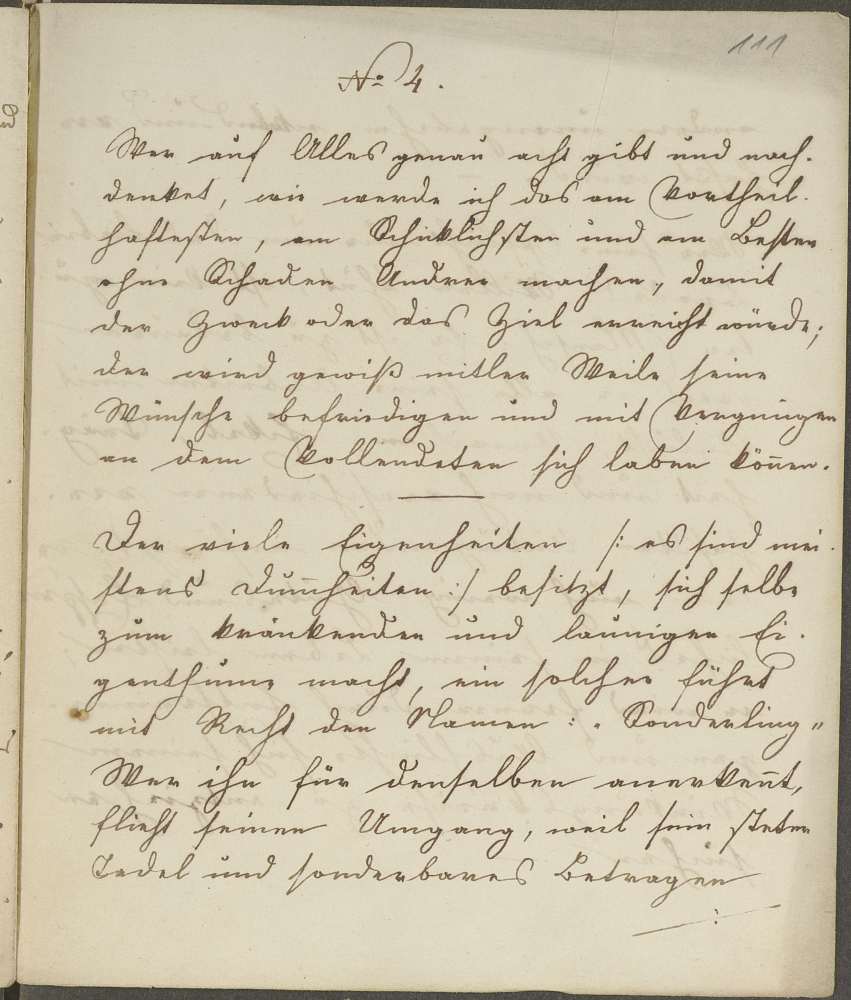 111
No 4.
Wer auf Alles genau acht gibt und nach-
denket, wie werde ich das am Vortheil-
haftesten, am Schicklichsten und am Besten
ohne Schaden Andrer machen, damit
der Zweck oder das Ziel erreicht würde;
der wird gewiß mitler Weile seine
Wünsche befriedigen und mit Vergnügen
an dem Vollendeten sich laben können.
Der viele Eigenheiten /: es sind mei-
stens Dum̄heiten :/ besitzt, sich selbe
zum kränkenden und launigen Ei-
genthume macht, ein solcher führt
mit Recht den Namen: „Sonderling"
Wer ihn für denselben anerken̄t,
flieht seinen Umgang, weil sein steter
Tadel und sonderbares Betragen